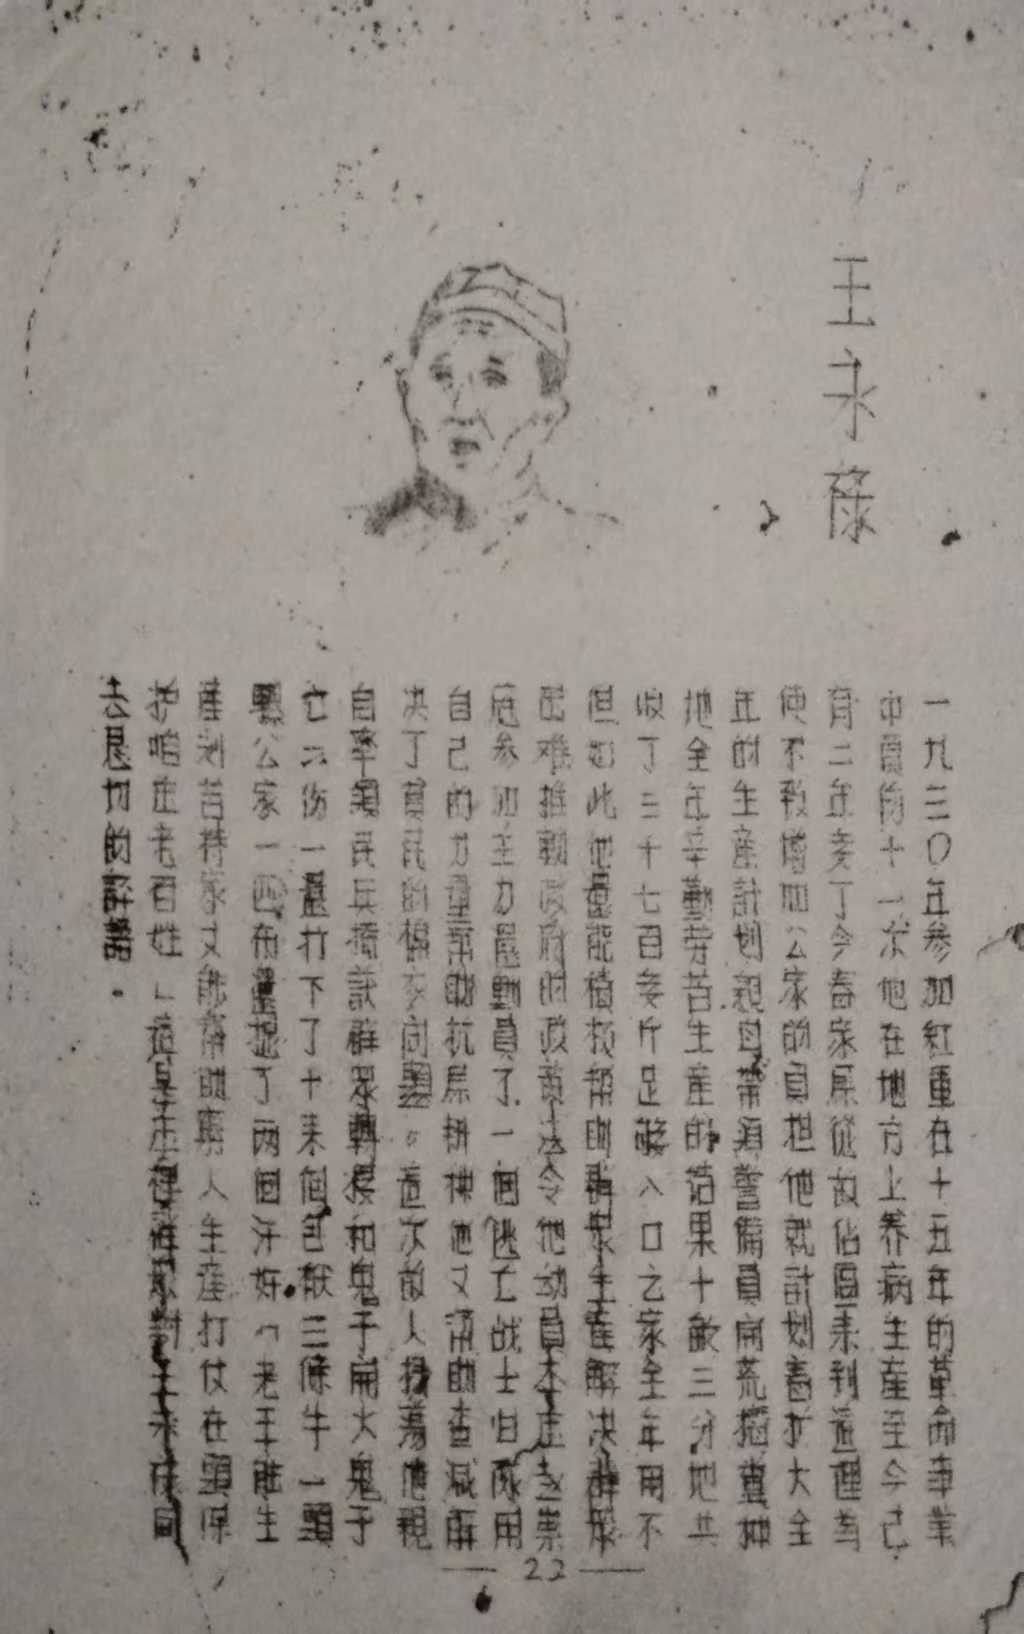 王永祿
一九三〇年参加紅軍在十五年的革命事業
中負伤十一次他在地方上养病生產至今已
有二年多了今春家屬從故佔區来到這裡為
使不致增加公家的負担他就計划着扩大全
年的生產計划親自帶領警備員開荒擔糞种
地全年辛勤劳苦生產的結果十畝三分地共
收了三十七百多斤足够八口之家全年用不
但如此他還能積极帮助群衆生產解决群衆
困难推動政府的政策法令他动員本庄
参加主力還動員了一個逃亡战士归队用
自己的力量帮助抗屬拼棉他又帮助查减解
决了貧民的棉衣问題。這次敌人掃蕩他親
自率領民兵掩護群眾轉移和鬼子開火鬼子
亡六伤一還打下了十来個包袱三條牛一
公家一匹布還捉了两個汗奸「老王能生
產刻苦持家又能帮助窮人生產打仗在頭保
护咱庄老百姓」這是庄群衆對王永祿同
志恳切的評語。
22